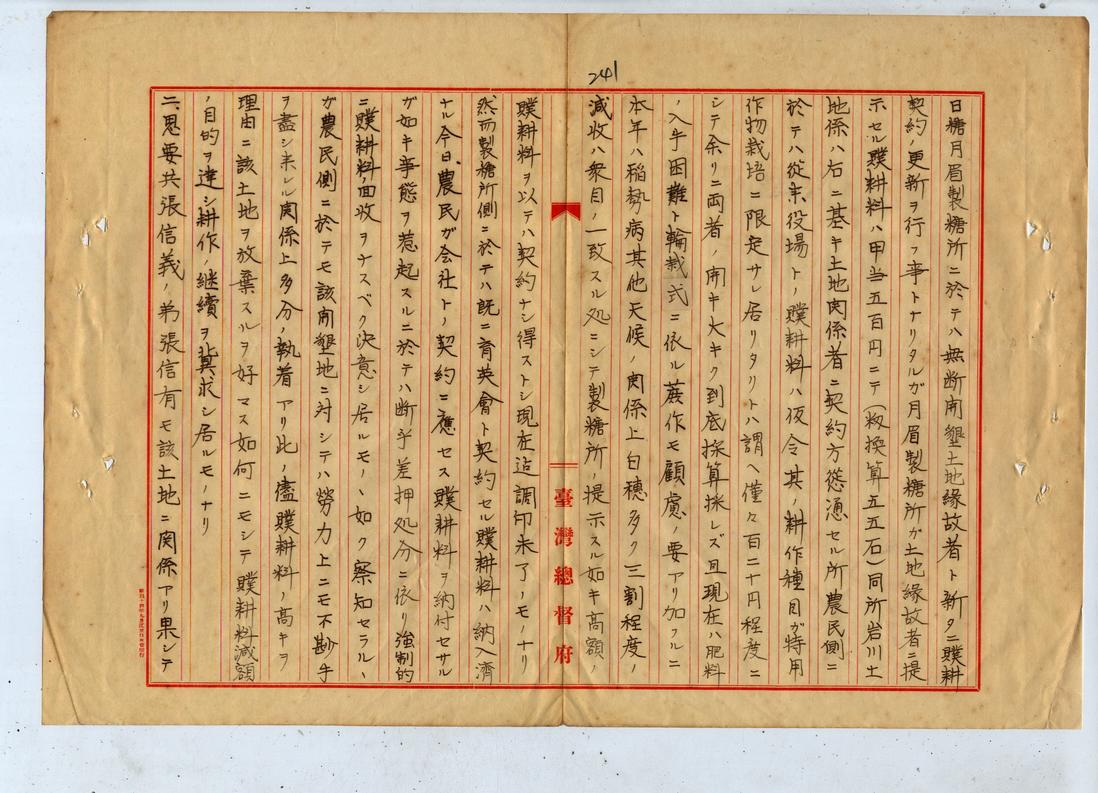 241
日糖月眉製糖所ニ於テハ無断開墾土地縁故者ト新タニ贌耕
契約ノ更新ヲ行フ事トナリタルガ月眉製糖所ガ土地縁故者ニ提
示セル贌耕料ハ甲当五百円ニテ(籾換算五五石)同所岩川土
地係ハ右ニ基キ土地関係者ニ契約方慫慂セル所農民側ニ
於テハ従来役場トノ贌耕料ハ仮令其ノ耕作種目ガ特用
作物栽培ニ限定サレ居リタリトハ謂ヘ僅々百二十円程度ニ
シテ余リニ両者ノ開キ大キク到底採算採レズ且現在ハ肥料
ノ入手困難ト輪栽式ニ依ル蔗作モ顧慮ノ要アリ加フルニ
本年ハ稲熱病其他天候ノ関係上白穂多ク三割程度ノ
減收ハ衆目ノ一致スル処ニシテ製糖所ノ提示スル如キ高額ノ
臺灣總督府
贌耕料ヲ以テハ契約ナシ得ストシ現在迠調印未了ノモノナリ
然而製糖所側ニ於テハ既ニ育英會ト契約セル贌耕料ハ納入済
ナル今日、農民ガ会社トノ契約ニ應セス贌耕料ヲ納付セサル
ガ如キ事態ヲ惹起スルニ於テハ断乎差押処分ニ依リ強制的
ニ贌耕料ノ回收ヲナスベク決意シ居ルモノヽ如ク察知セラルヽ
ガ農民側ニ於テモ該開墾地ニ対シテハ勞力上ニモ不尠手
ヲ盡シ来レル関係上多分ノ執着アリ此ノ儘贌耕料ノ高キヲ
理由ニ該土地ヲ放棄スルヲ好マス如何ニモシテ贌耕料減額
ノ目的ヲ達シ耕作ノ継續ヲ冀求シ居ルモノナリ
二、思要共張信義ノ弟張信有モ該土地ニ関係アリ果シテ